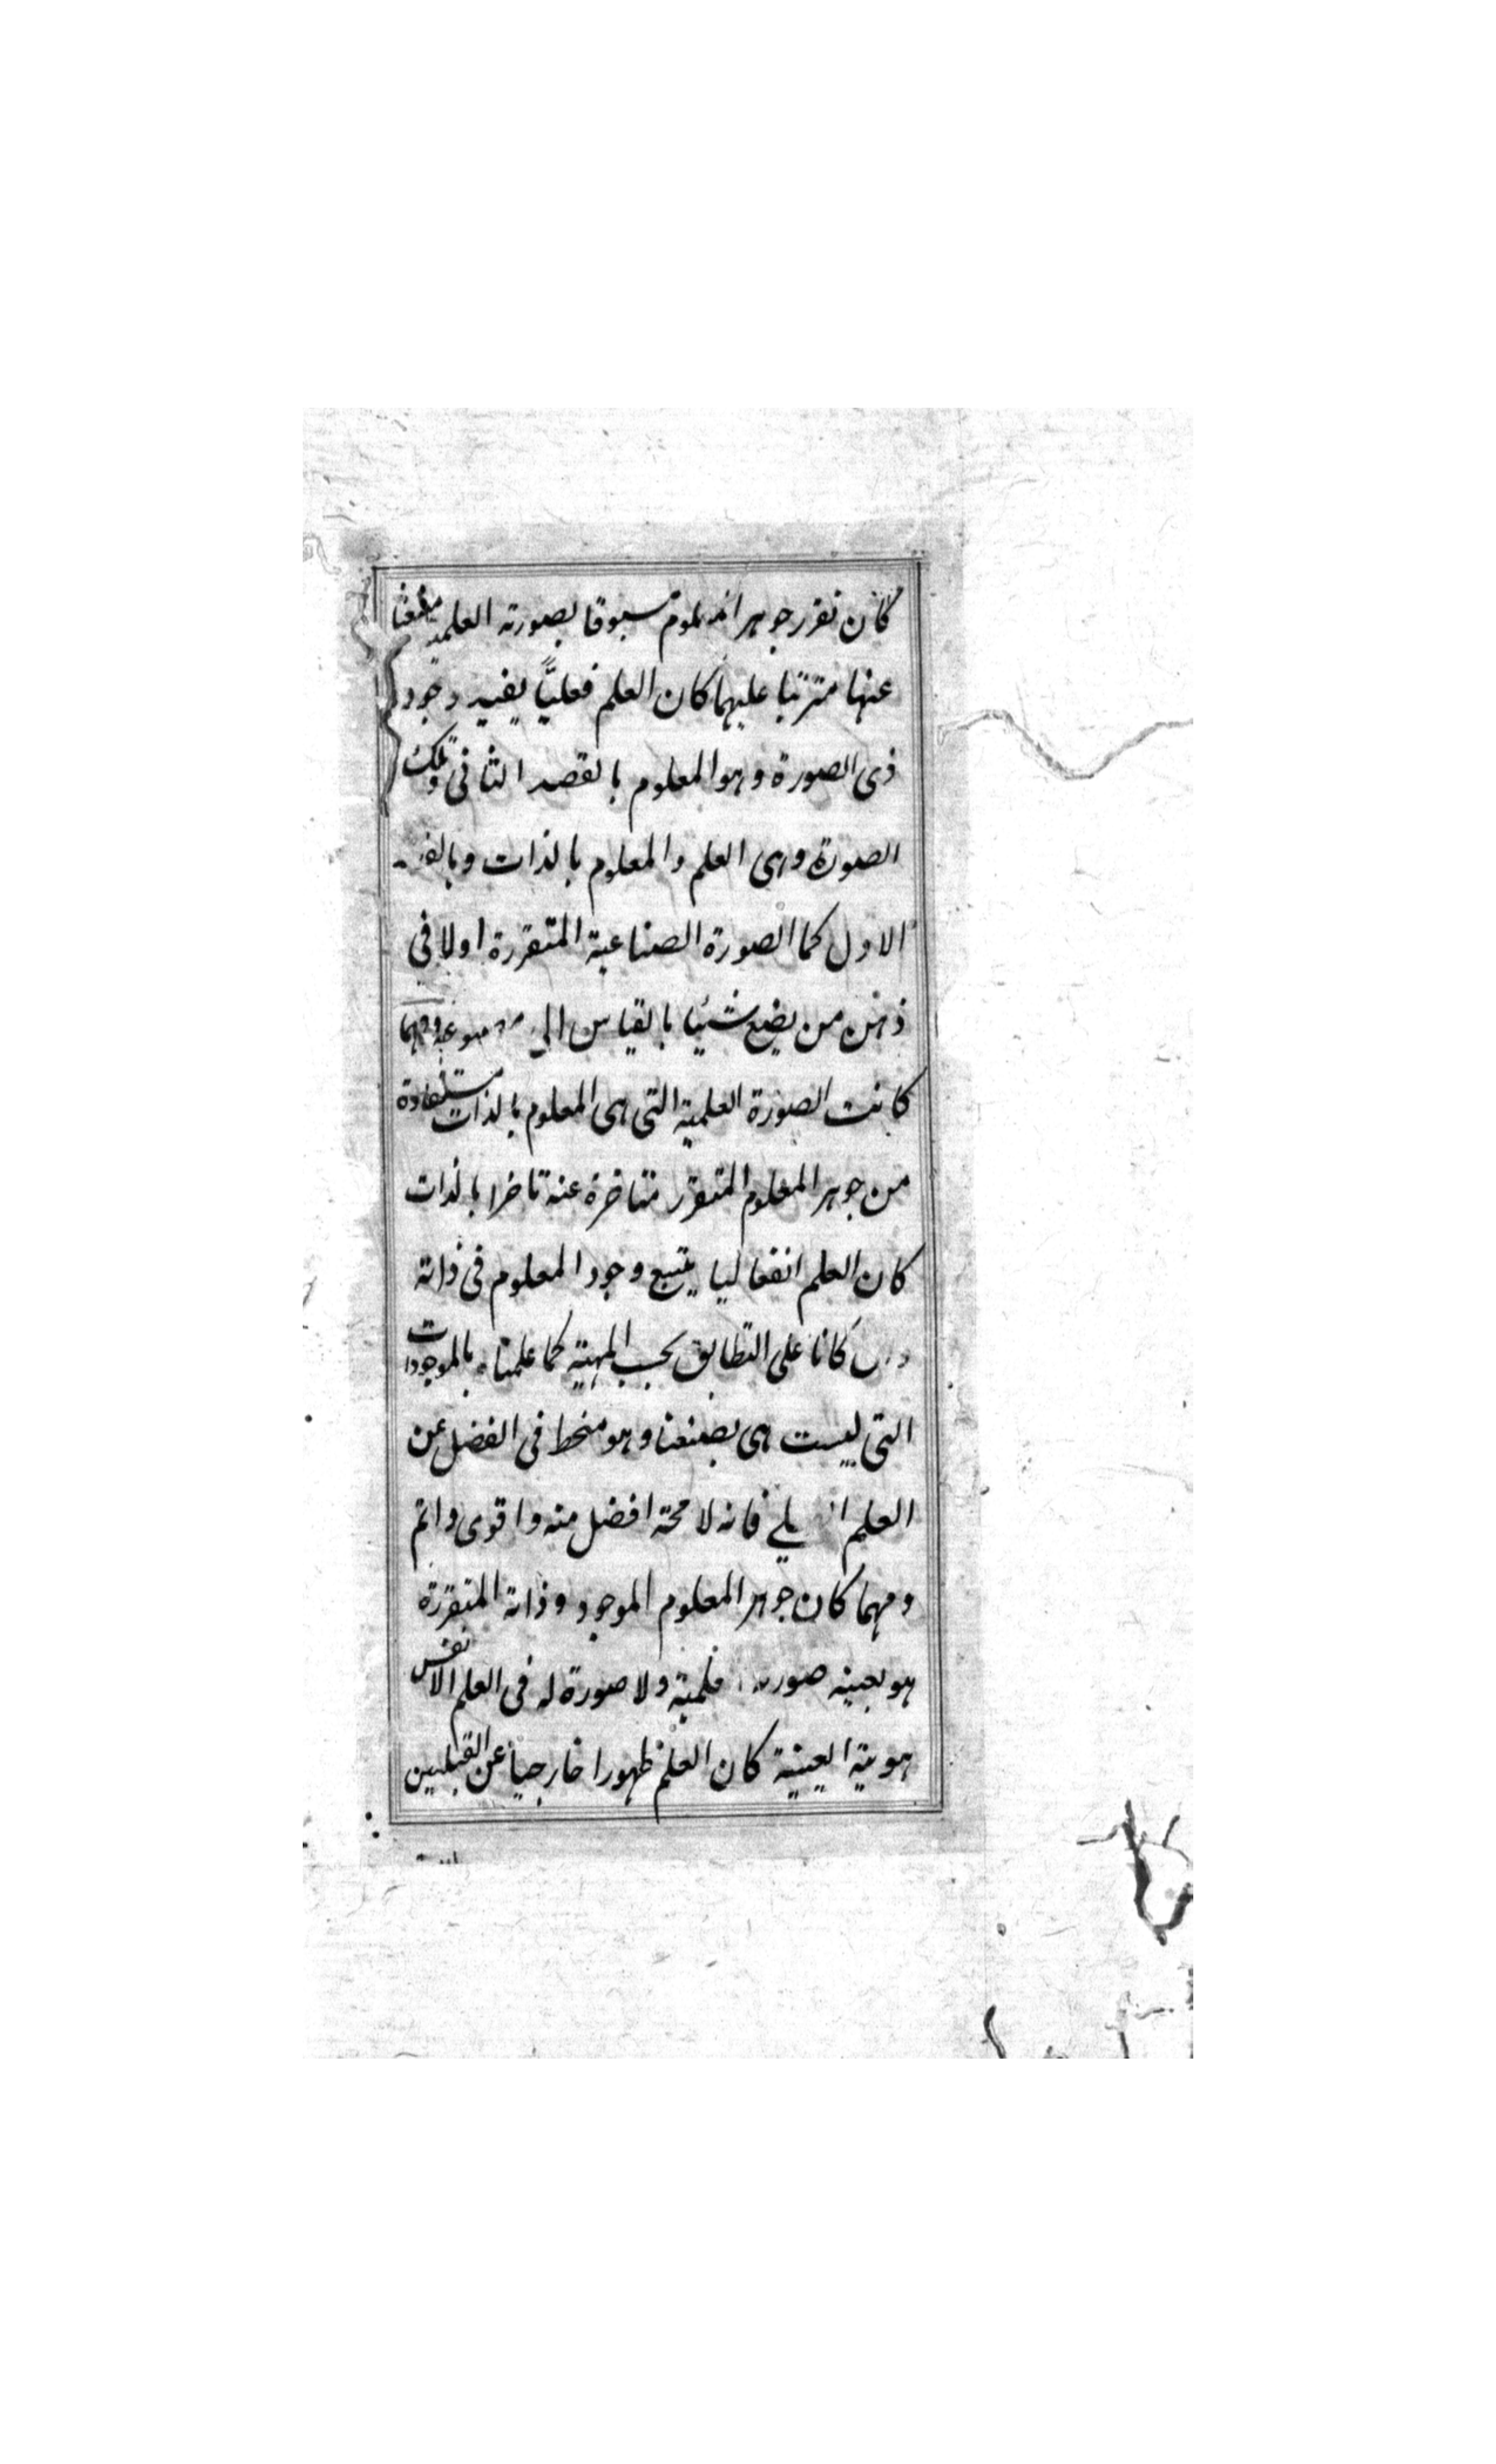 كان تقرر جوهر المعلوم مسبوقا بصورته العلمية منبعثا
عنها مترتبا عليها كان العلم فعليًّا يفيد وجود
ذى الصورة وهو المعلوم بالقصد الثانى وتلك
الصورة وهى العلم والمعلوم بالذات وبالقصد
الاول كما الصورة الصناعية المتقررة اولا فى
ذهن من يضع شيئا بالقياس الى ومهما
كانت الصورة العلمية التى هى المعلوم بالذات مستفادة
من جوهر المعلوم المتقرر متاخرة عنه تاخرا بالذات
كان العلم انفعاليا يتبع وجود المعلوم فى ذاته
وان كانا على التطابق بحسب المهية كما علمنا بالموجودات
التى ليست هى بصنعنا وهو منحط فى الفضل عن
العلم فانه لا محة افضل منه واقوى واتم
ومهما كان جوهر المعلوم الموجود وذاته المتقررة
هو بعينه صورته العلمية ولا صورة له فى العلم الا نفس
هويته العينية كان العلم ظهورا خارجيا عن القبيلين